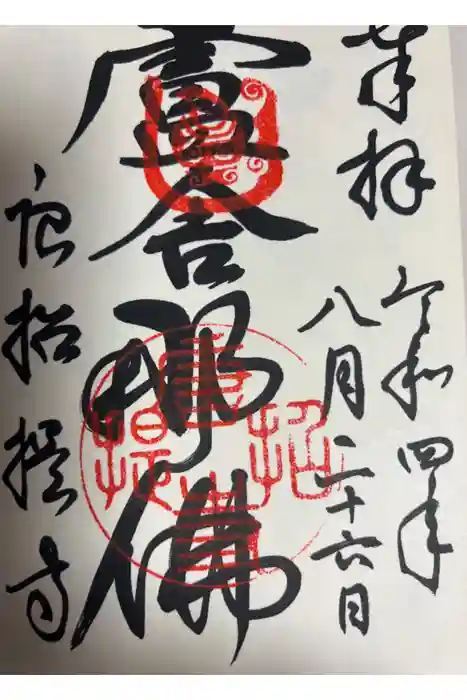 奉拝
令和四年
八月二十六日
盧舎那佛
唐招提寺